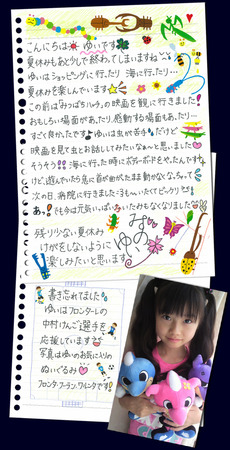 こんにちは ゆいです
夏休みもあと少しで終わってしまいますね
ゆいはショッピングに行ったり 海に行ったり…
夏休みを楽しんでいます
この前は「みつばちハッチ」の映画を観に行きました!
おもしろい場面があったり、感動する場面もあったり…
すごく良かったです♪ゆいは虫が苦手だけど
映画を見て虫とお話ししてみたいなぁ〜と思いました
そうそう!!海に行った時にボディーボードをやったんです
けど、遊んでいたら急に首が曲がったまま動かなくなっちゃって
次の日、病院に行きました…るも〜いたくてビックリ
あっ!でも今は元気いっぱい、ないたみもなくなりました
残り少ない夏休み
けがをしないように
楽しみたいと思います
みなさん
ゆい
書き忘れてました
ゆいはフロンターレの
中村けんご選手を
応援しています
写真はゆいのお気に入りの
ぬいぐるみ
フロンタ・フーラン・ワインタです!